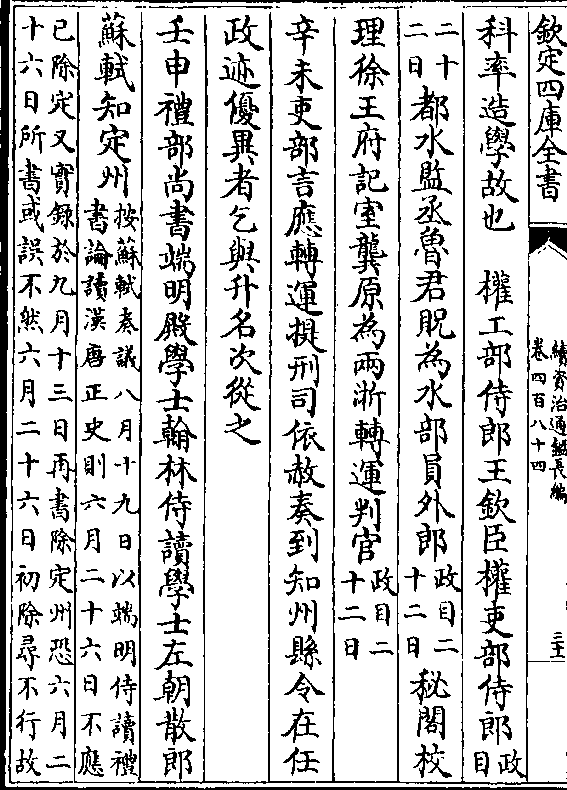 欽定四庫全書
續資治通鑑長編
卷四百八十四
三十
科率造學故也　權工部侍郎王欽臣權吏部侍郎政目
二十二日都水監丞魯君貺為水部員外郎政目二十二日秘閣校
理徐王府記室龔原為兩浙轉運判官政目二十二日
辛未吏部言應轉運提刑司依赦奏到知州縣令在任
政迹優異者乞與升名次從之
壬申禮部尚書端明殿學士翰林侍讀學士左朝散郎
蘇軾知定州按蘇軾奏議八月十九日以端明侍讀禮
書論讀漢唐正史則六月二十六日不應
已除定又實錄於九月十三日再書除定州恐六月二
十六日所書或誤不然六月二十六日初除尋不行故